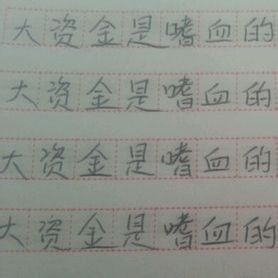 大资金是嗜血的
大资金是嗜血的
大资金是嗜血的
大资金是嗜血的